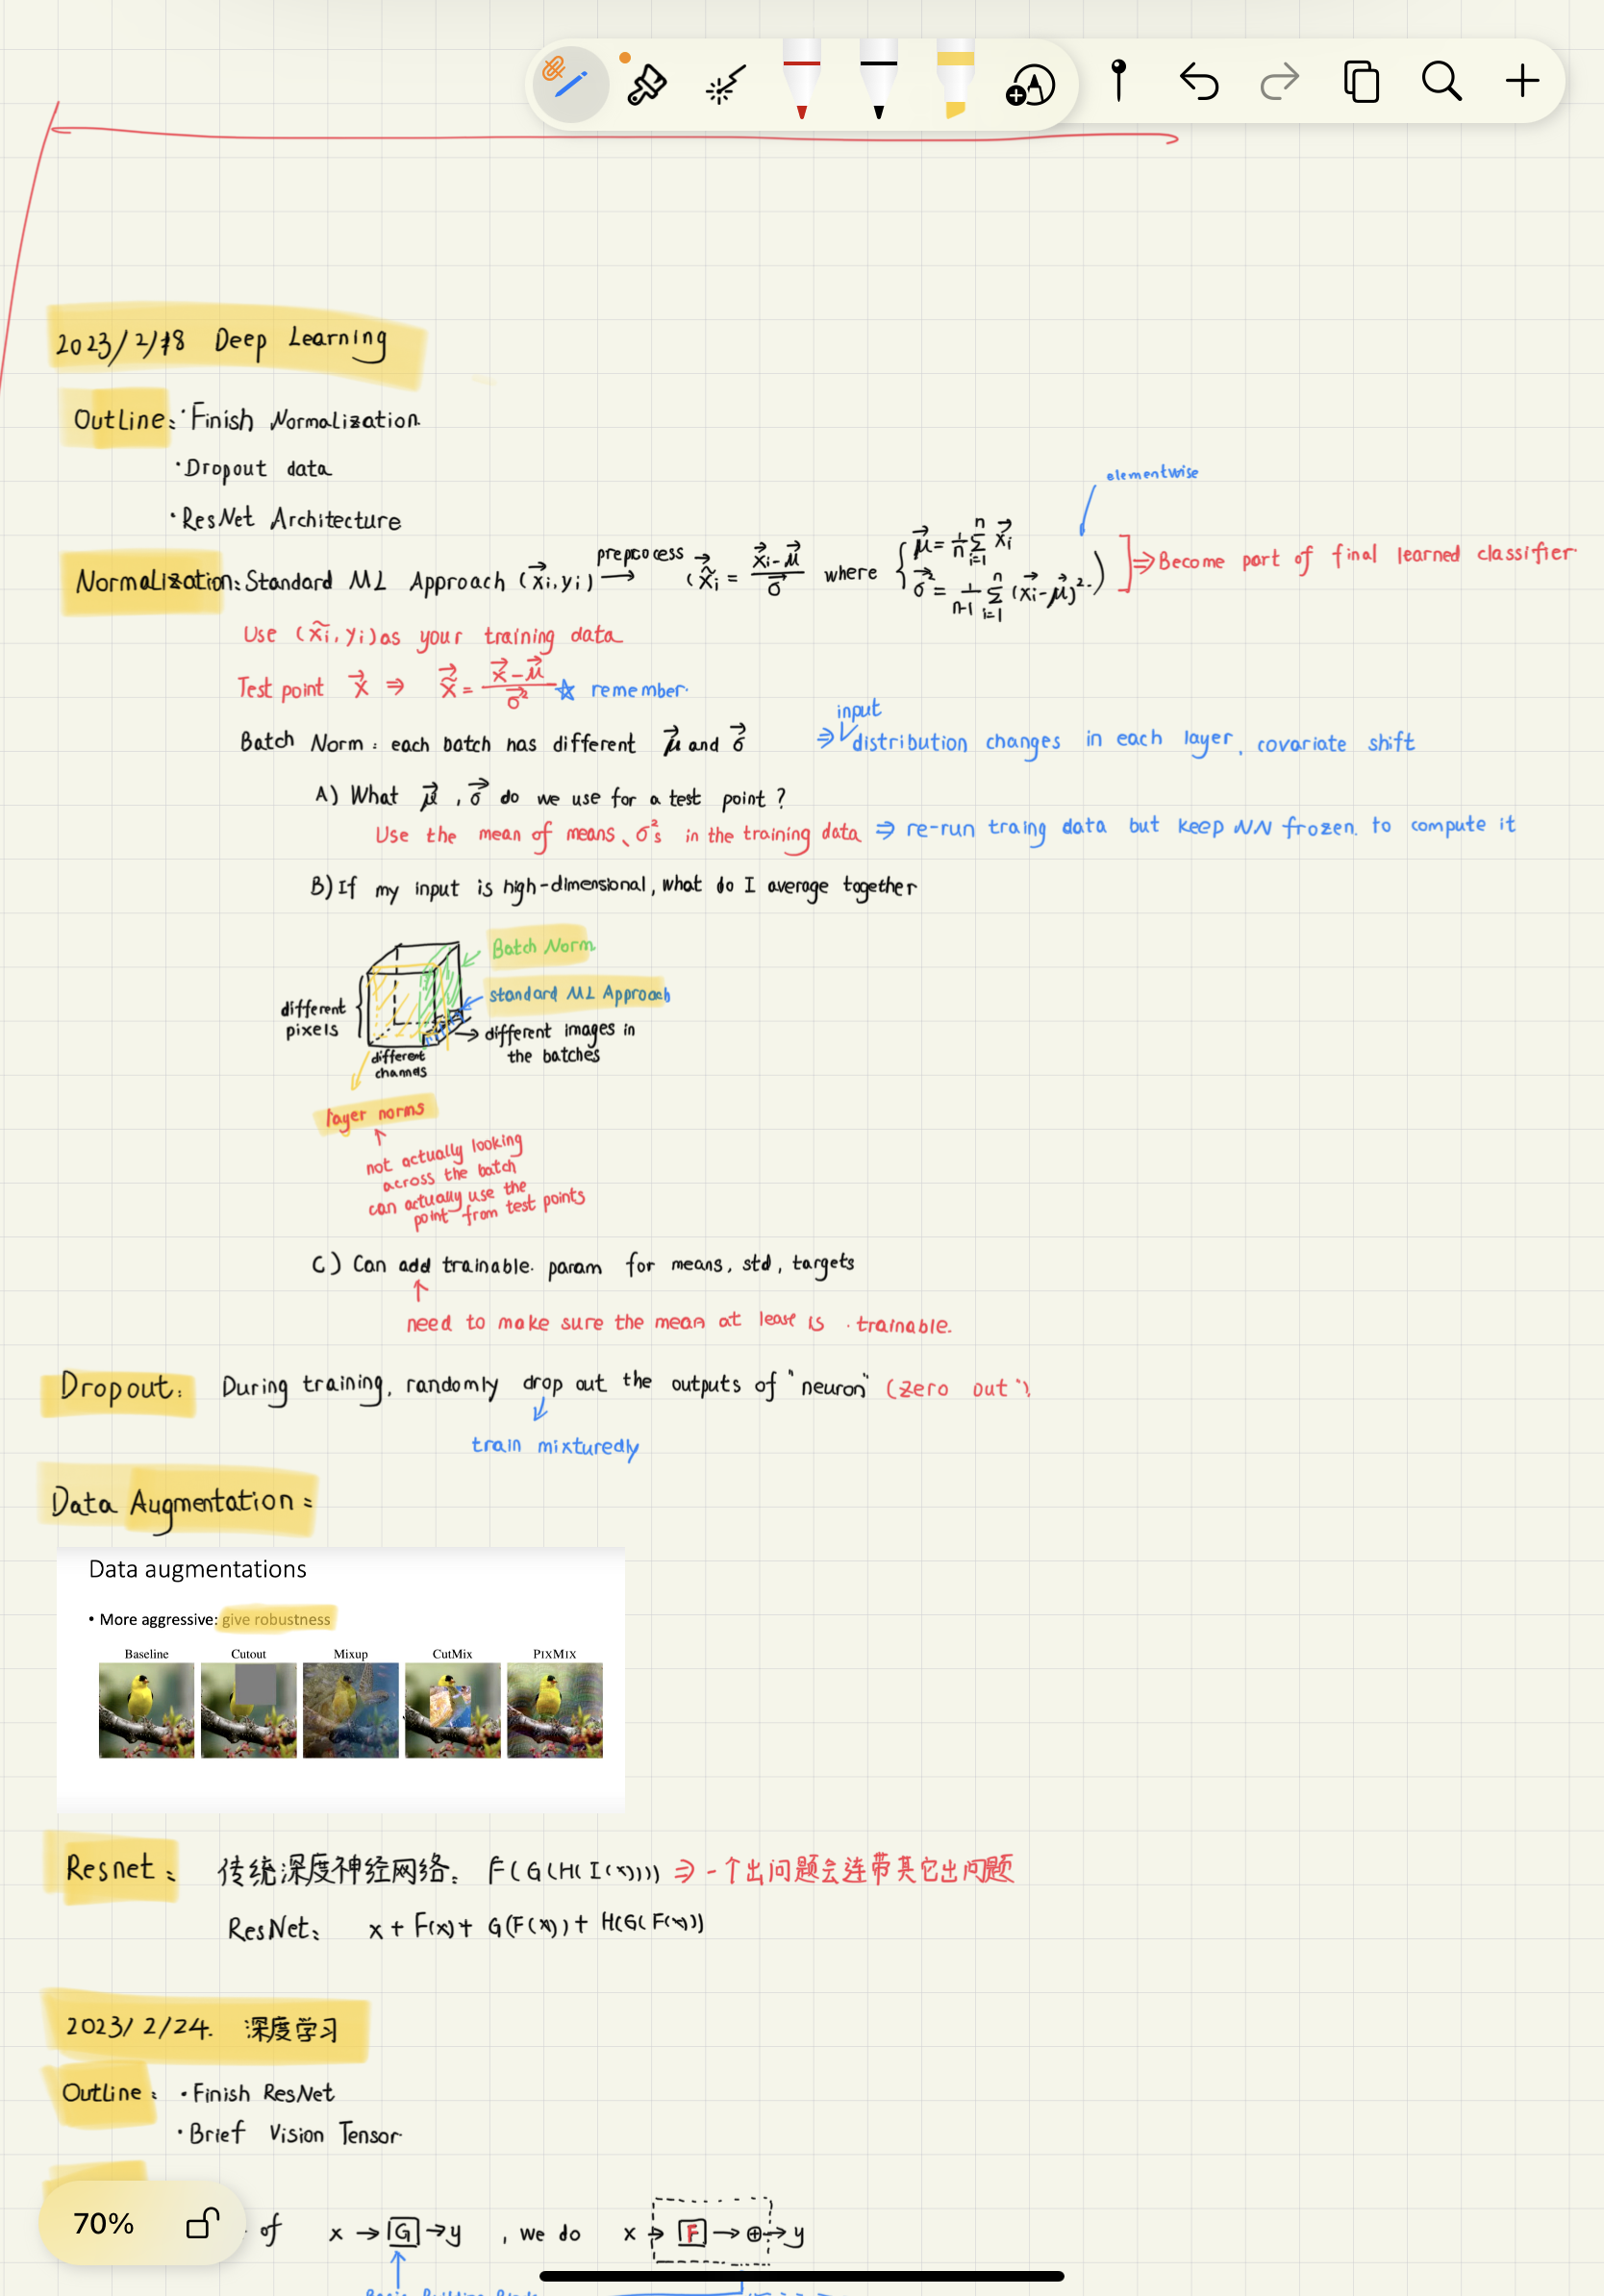 2023/2/18 Deep Learning
Outline: · Finish Normalization
· Dropout data
· ResNet Architecture
elementwise
Normalization: Standard ML Approach (x⃗i, yi) preprocess → (x̃⃗i = (x⃗i - μ⃗)/σ⃗ where { μ⃗ = 1/n Σ_{i=1}^{n} x⃗i
σ⃗² = 1/(n-1) Σ_{i=1}^{n} (x⃗i - μ⃗)². ) ] ⇒ Become part of final learned classifier.
Use (x̃i, yi) as your training data
Test point x⃗ ⇒ x̃⃗ = (x⃗ - μ⃗)/σ⃗² ☆ remember.
Batch Norm: each batch has different μ⃗ and σ⃗ ⇒ input distribution changes in each layer. covariate shift
A) What μ⃗, σ⃗ do we use for a test point?
Use the mean of means、σ²'s in the training data ⇒ re-run traing data but keep NN frozen. to compute it
B) If my input is high-dimensional, what do I average together
Batch Norm
standard ML Approach
different pixels
different images in
the batches
different
channels
layer norms
not actually looking
across the batch
can actually use the
point from test points
C) Can add trainable. param for means, std, targets
need to make sure the mean at least is . trainable.
Dropout: During training, randomly drop out the outputs of "neuron" (zero out").
train mixturedly
Data Augmentation:
Data augmentations
• More aggressive: give robustness
Baseline Cutout Mixup CutMix PIXMIX
Resnet: 传统深度神经网络: F(G(H(I(x)))) ⇒ 一个出问题会连带其它出问题
ResNet: x + F(x) + G(F(x)) + H(G(F(x)))
2023/2/24. 深度学习
Outline: · Finish ResNet
· Brief Vision Tensor
70%
of x → G → y , we do x → F → ⊕ → y